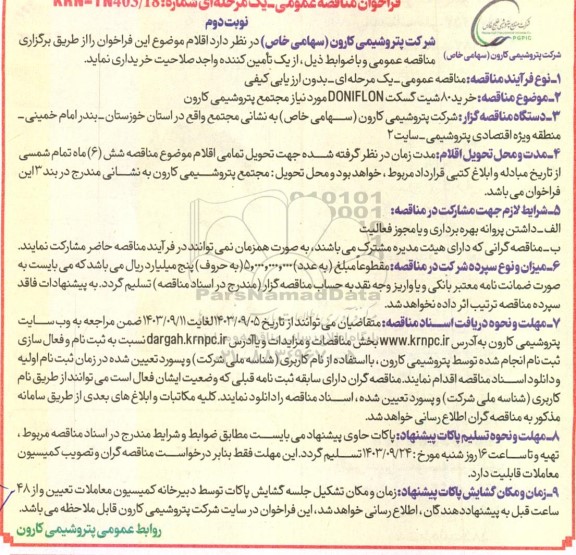 فراخوان مناقصه عمومی-یک مرحله‌ای شماره: KRN-TN403/18
نوبت دوم
شرکت پتروشیمی کارون (سهامی خاص) در نظر دارد اقلام موضوع این فراخوان را از طریق برگزاری
مناقصه عمومی و با ضوابط ذیل، از یک تأمین کننده واجد صلاحیت خریداری نماید.
PGPIC
شرکت پتروشیمی کارون (سهامی خاص)
۱-نوع فرآیند مناقصه: مناقصه عمومی-یک مرحله‌ای-بدون ارزیابی کیفی
۲-موضوع مناقصه: خرید ۸۰ شیت گسکت DONIFLON مورد نیاز مجتمع پتروشیمی کارون
۳-دستگاه مناقصه گزار: شرکت پتروشیمی کارون (سهامی خاص) به نشانی مجتمع واقع در استان خوزستان-بندر امام خمینی-
منطقه ویژه اقتصادی پتروشیمی-سایت ۲
۴-مدت و محل تحویل اقلام: مدت زمان در نظر گرفته شده جهت تحویل تمامی اقلام موضوع مناقصه شش (۶) ماه تمام شمسی
از تاریخ مبادله و ابلاغ کتبی قرارداد مربوط، خواهد بود و محل تحویل: مجتمع پتروشیمی کارون به نشانی مندرج در بند ۳ این
فراخوان می باشد.
۵-شرایط لازم جهت مشارکت در مناقصه:
الف-داشتن پروانه بهره برداری و یا مجوز فعالیت
ب-مناقصه گرانی که دارای هیئت مدیره مشترک می باشند، به صورت همزمان نمی توانند در فرآیند مناقصه حاضر مشارکت نمایند.
۶-میزان و نوع سپرده شرکت در مناقصه: مقطوعا مبلغ (به عدد) ۵,۰۰۰,۰۰۰,۰۰۰ (به حروف) پنج میلیارد ریال می باشد که می بایست به
صورت ضمانت نامه معتبر بانکی و یا واریز وجه نقد به حساب مناقصه گزار (مندرج در اسناد مناقصه) تسلیم گردد. به پیشنهادات فاقد
سپرده مناقصه ترتیب اثر داده نخواهد شد.
۷-مهلت و نحوه دریافت اسناد مناقصه: متقاضیان می توانند از تاریخ ۱۴۰۳/۰۹/۰۵ لغایت ۱۴۰۳/۰۹/۱۱ ضمن مراجعه به وب سایت
پتروشیمی کارون به آدرس www.krnpc.ir بخش مناقصات و مزایدات و یا آدرس dargah.krnpc.ir نسبت به ثبت نام و فعال سازی
ثبت نام انجام شده توسط پتروشیمی کارون، با استفاده از نام کاربری (شناسه ملی شرکت) و پسورد تعیین شده در زمان ثبت نام اولیه
و دانلود اسناد مناقصه اقدام نمایند. مناقصه گران دارای سابقه ثبت نامه قبلی که وضعیت ایشان فعال است می توانند از طریق نام
کاربری (شناسه ملی شرکت) و پسورد تعیین شده، اسناد مناقصه را دانلود نمایند. کلیه مکاتبات و ابلاغ های بعدی از طریق سامانه
مذکور به مناقصه گران اطلاع رسانی خواهد شد.
۸-مهلت و نحوه تسلیم پاکات پیشنهاد: پاکات حاوی پیشنهاد می بایست مطابق ضوابط و شرایط مندرج در اسناد مناقصه مربوط،
تهیه و تا ساعت ۱۶ روز شنبه مورخ: ۱۴۰۳/۰۹/۲۴ تسلیم گردد. این مهلت فقط بنابر درخواست مناقصه گران و تصویب کمیسیون
معاملات قابلیت دارد.
۹-زمان و مکان گشایش پاکات پیشنهاد: زمان و مکان تشکیل جلسه گشایش پاکات توسط دبیرخانه کمیسیون معاملات تعیین و از ۴۸
ساعت قبل به پیشنهاد دهندگان، اطلاع رسانی خواهد شد، این فراخوان در سایت شرکت پتروشیمی کارون قابل ملاحظه می باشد.
روابط عمومی پتروشیمی کارون
ParsNamadData